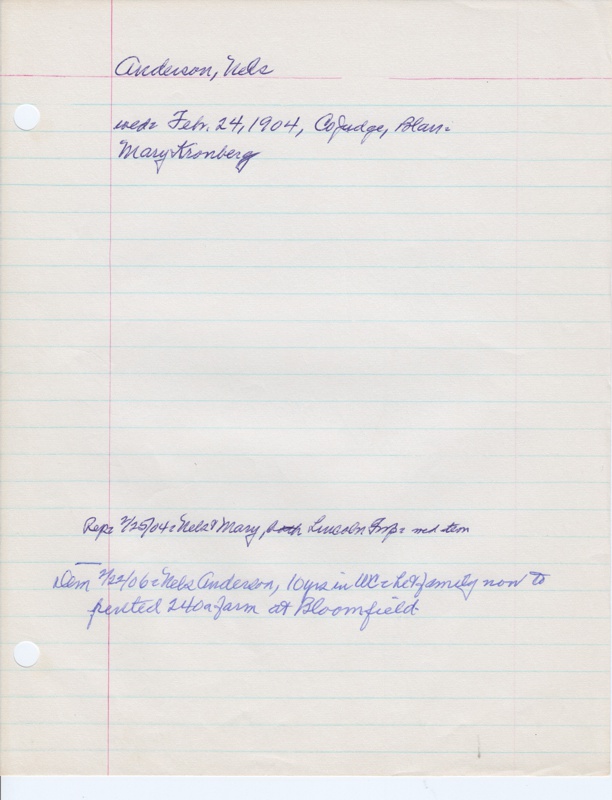 Anderson, Nels
wed= Feb. 24, 1904, Co Judge, Blair=
Mary Kronberg
Rep= 2/25/04= Nels & Mary, Lincoln Twp= md item
Dem 2/22/06= Nels Anderson, 10 yrs in WC= he & family now to
rented 240a farm at Bloomfield